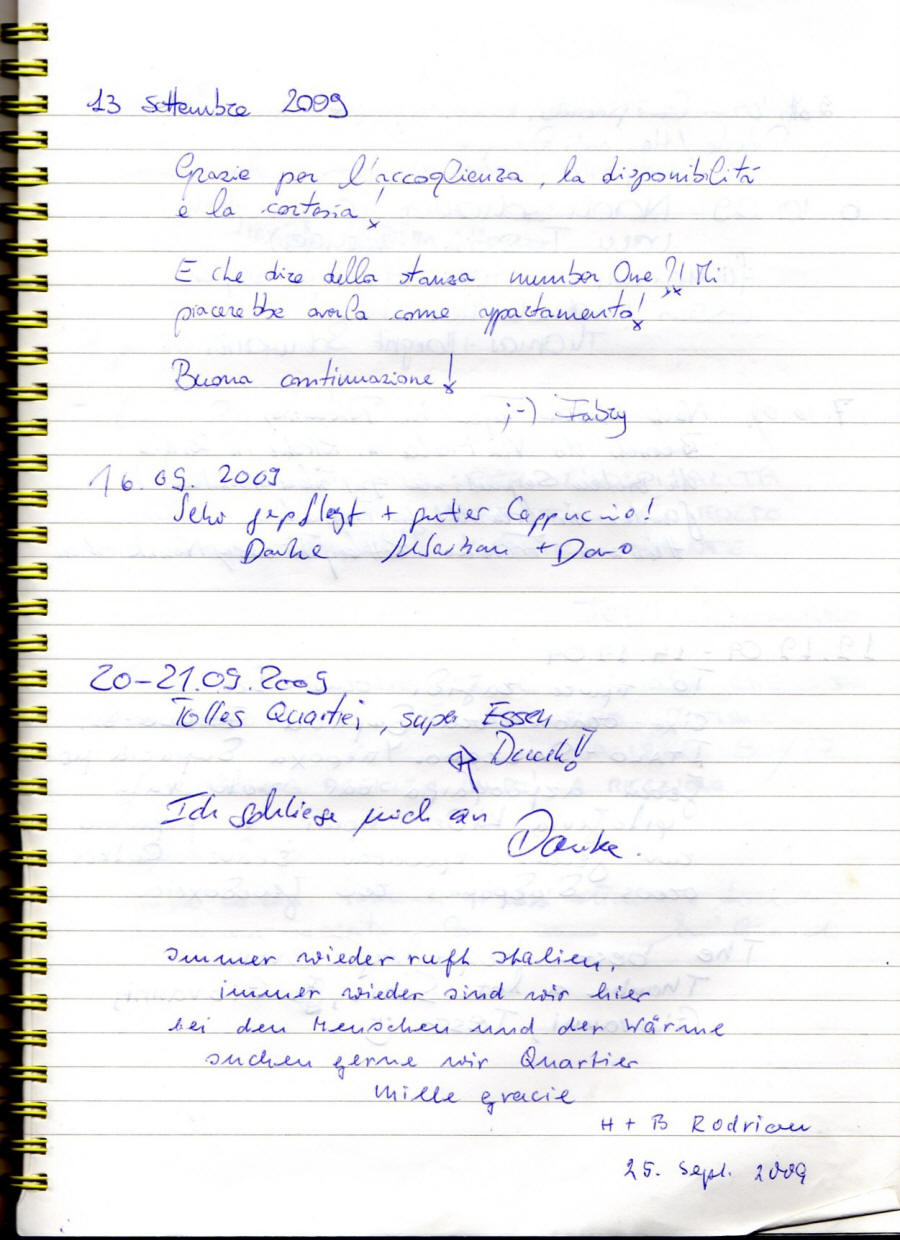 13 settembre 2009
Grazie per l'accoglienza, la disponibilità
e la cortesia!
E che dire della stanza number One?! Mi
piacerebbe averla come appartamento!
Buona continuazione!
;-) Fabry
16.09.2009
Sehr gepflegt + guter Cappuccino!
Danke + Doro
20-21.09.2009
Tolles Quartier, super Essen
Dank!!
Ich schliese mich an
Danke.
Immer wieder ruft Italien,
immer wieder sind wir hier
bei den Menschen und der Wärme
suchen gerne wir Quartier
Mille gracie
H + B Rodrian
25. Sept. 2009